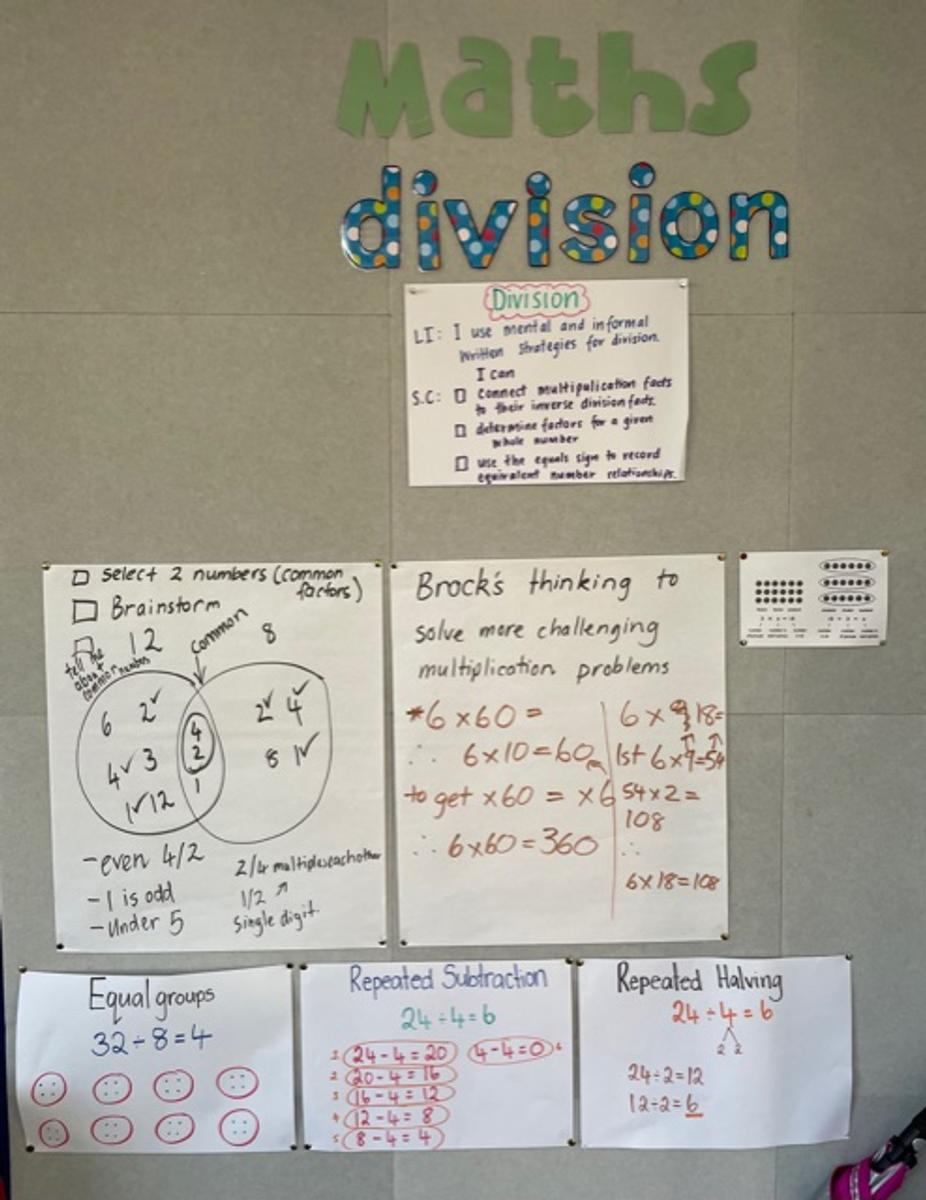 Maths
division
Division
LI: I use mental and informal
written strategies for division.
I can
S.C: connect multipulication facts
to their inverse division facts.
determine factors for a given
whole number
use the equals sign to record
equivalent number relationships.
select 2 numbers (common
factors)
Brainstorm
tell me
about
common numbers
12
common
8
6 2✓
4✓ 3
1✓ 12
4
2
1
2✓ 4✓
8 1✓
-even 4/2
-1 is odd
-Under 5
2/4 multiples eachother
1/2 ↗
Single digit.
Brock's thinking to
solve more challenging
multiplication problems
*6 x 60 =
∴ 6 x 10 = 60
to get x60 = x6
∴ 6x60 = 360
6 x 18=
1st 6x9=54
54x2=
108
∴
6x18=108
Equal groups
32÷8=4
Repeated Subtraction
24÷4=6
1 24-4=20
2 20-4=16
3 16-4=12
4 12-4=8
5 8-4=4
4-4=0 6
Repeated Halving
24÷4=6
2 2
24÷2=12
12÷2=6